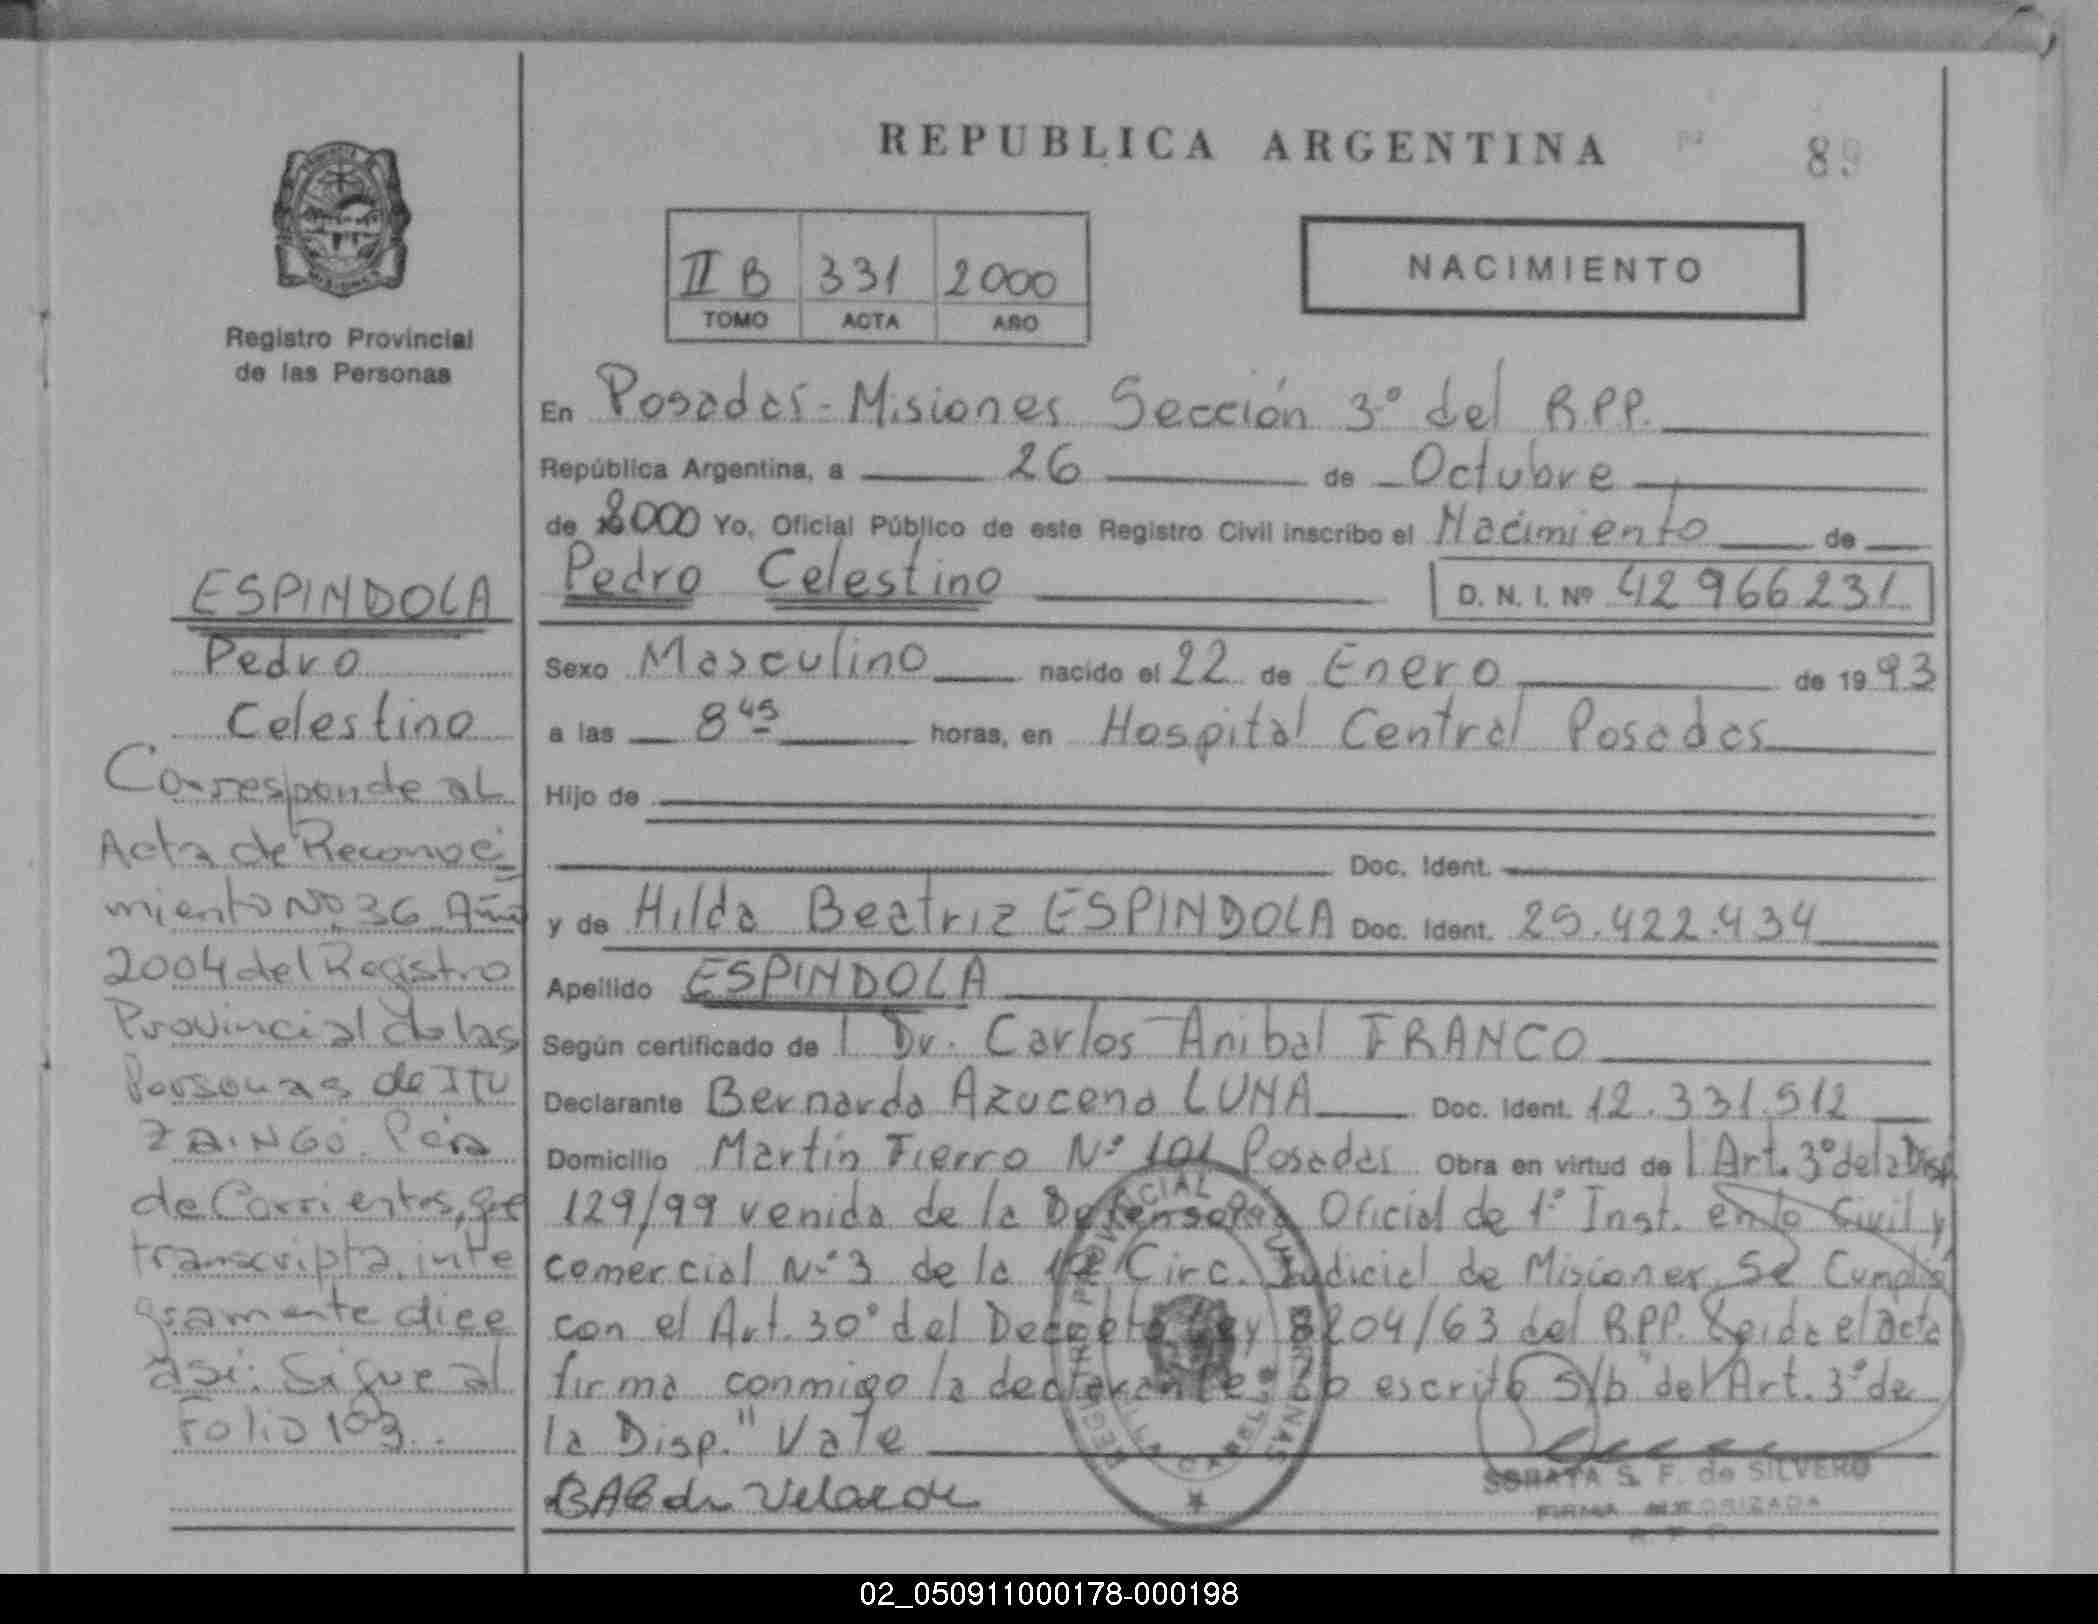 REPUBLICA ARGENTINA
89
II B 331 2000
TOMO ACTA AÑO
NACIMIENTO
Registro Provincial
de las Personas
En Posadas - Misiones Sección 3º del R.P.P.
República Argentina, a 26 de Octubre
de 2000 Yo, Oficial Público de este Registro Civil inscribo el Nacimiento de
Pedro Celestino D. N. I. Nº 42966231
Sexo Masculino nacido el 22 de Enero de 1993
a las 8 45 horas, en Hospital Central Posadas
Hijo de
Doc. Ident.
y de Hilda Beatriz ESPINDOLA Doc. Ident. 25.422.434
Apellido ESPINDOLA
Según certificado de l Dr. Carlos Anibal FRANCO
Declarante Bernarda Azucena LUNA Doc. Ident. 12.331.512
Domicilio Martín Fierro Nº 101 Posadas Obra en virtud de l Art. 3º de la Disp.
129/99 venida de la Defensoría Oficial de 1º Inst. en lo Civil y
comercial Nº 3 de la 1º Circ. Judicial de Misiones. Se Cumplió
con el Art. 30º del Decreto Ley 8204/63 del R.P.P. Leida el acta
firma conmigo la declarante. Lo escrito S/b "del Art. 3º de
la Disp." Vale
ESPINDOLA
Pedro
Celestino
Corresponde al
Acta de Reconoci
miento Nº 36 Año
2004 del Registro
Provincial de las
Personas de ITU
ZAINGO. Pcia
de Corrientes, que
transcripta inte
gramente dice
así: Sigue al
Folio 103.
REGISTRO PROVINCIAL
SORAYA S. F. de SILVERO
FIRMA AUTORIZADA
02_050911000178-000198